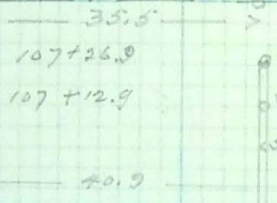 35.5
107+26.9
107+12.9
40.9